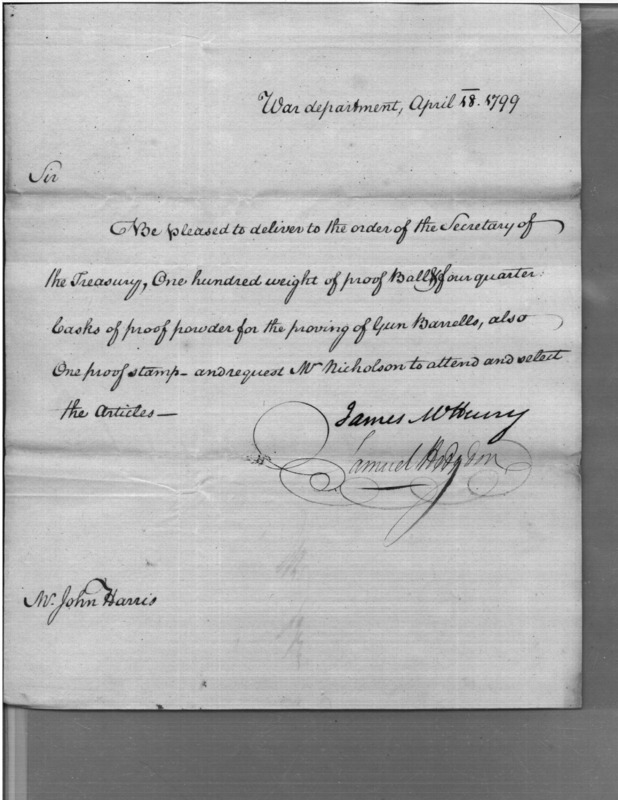 War department, April 18. 1799
Sir
Be pleased to deliver to the order of the Secretary of
the Treasury, One hundred weight of proof Ball & four quarter:
Casks of proof powder for the proving of Gun Barrells, also
One proof stamp - and request Mr Nicholson to attend and select
the articles —
James McHenry
Samuel Hodgdon
Mr. John Harris